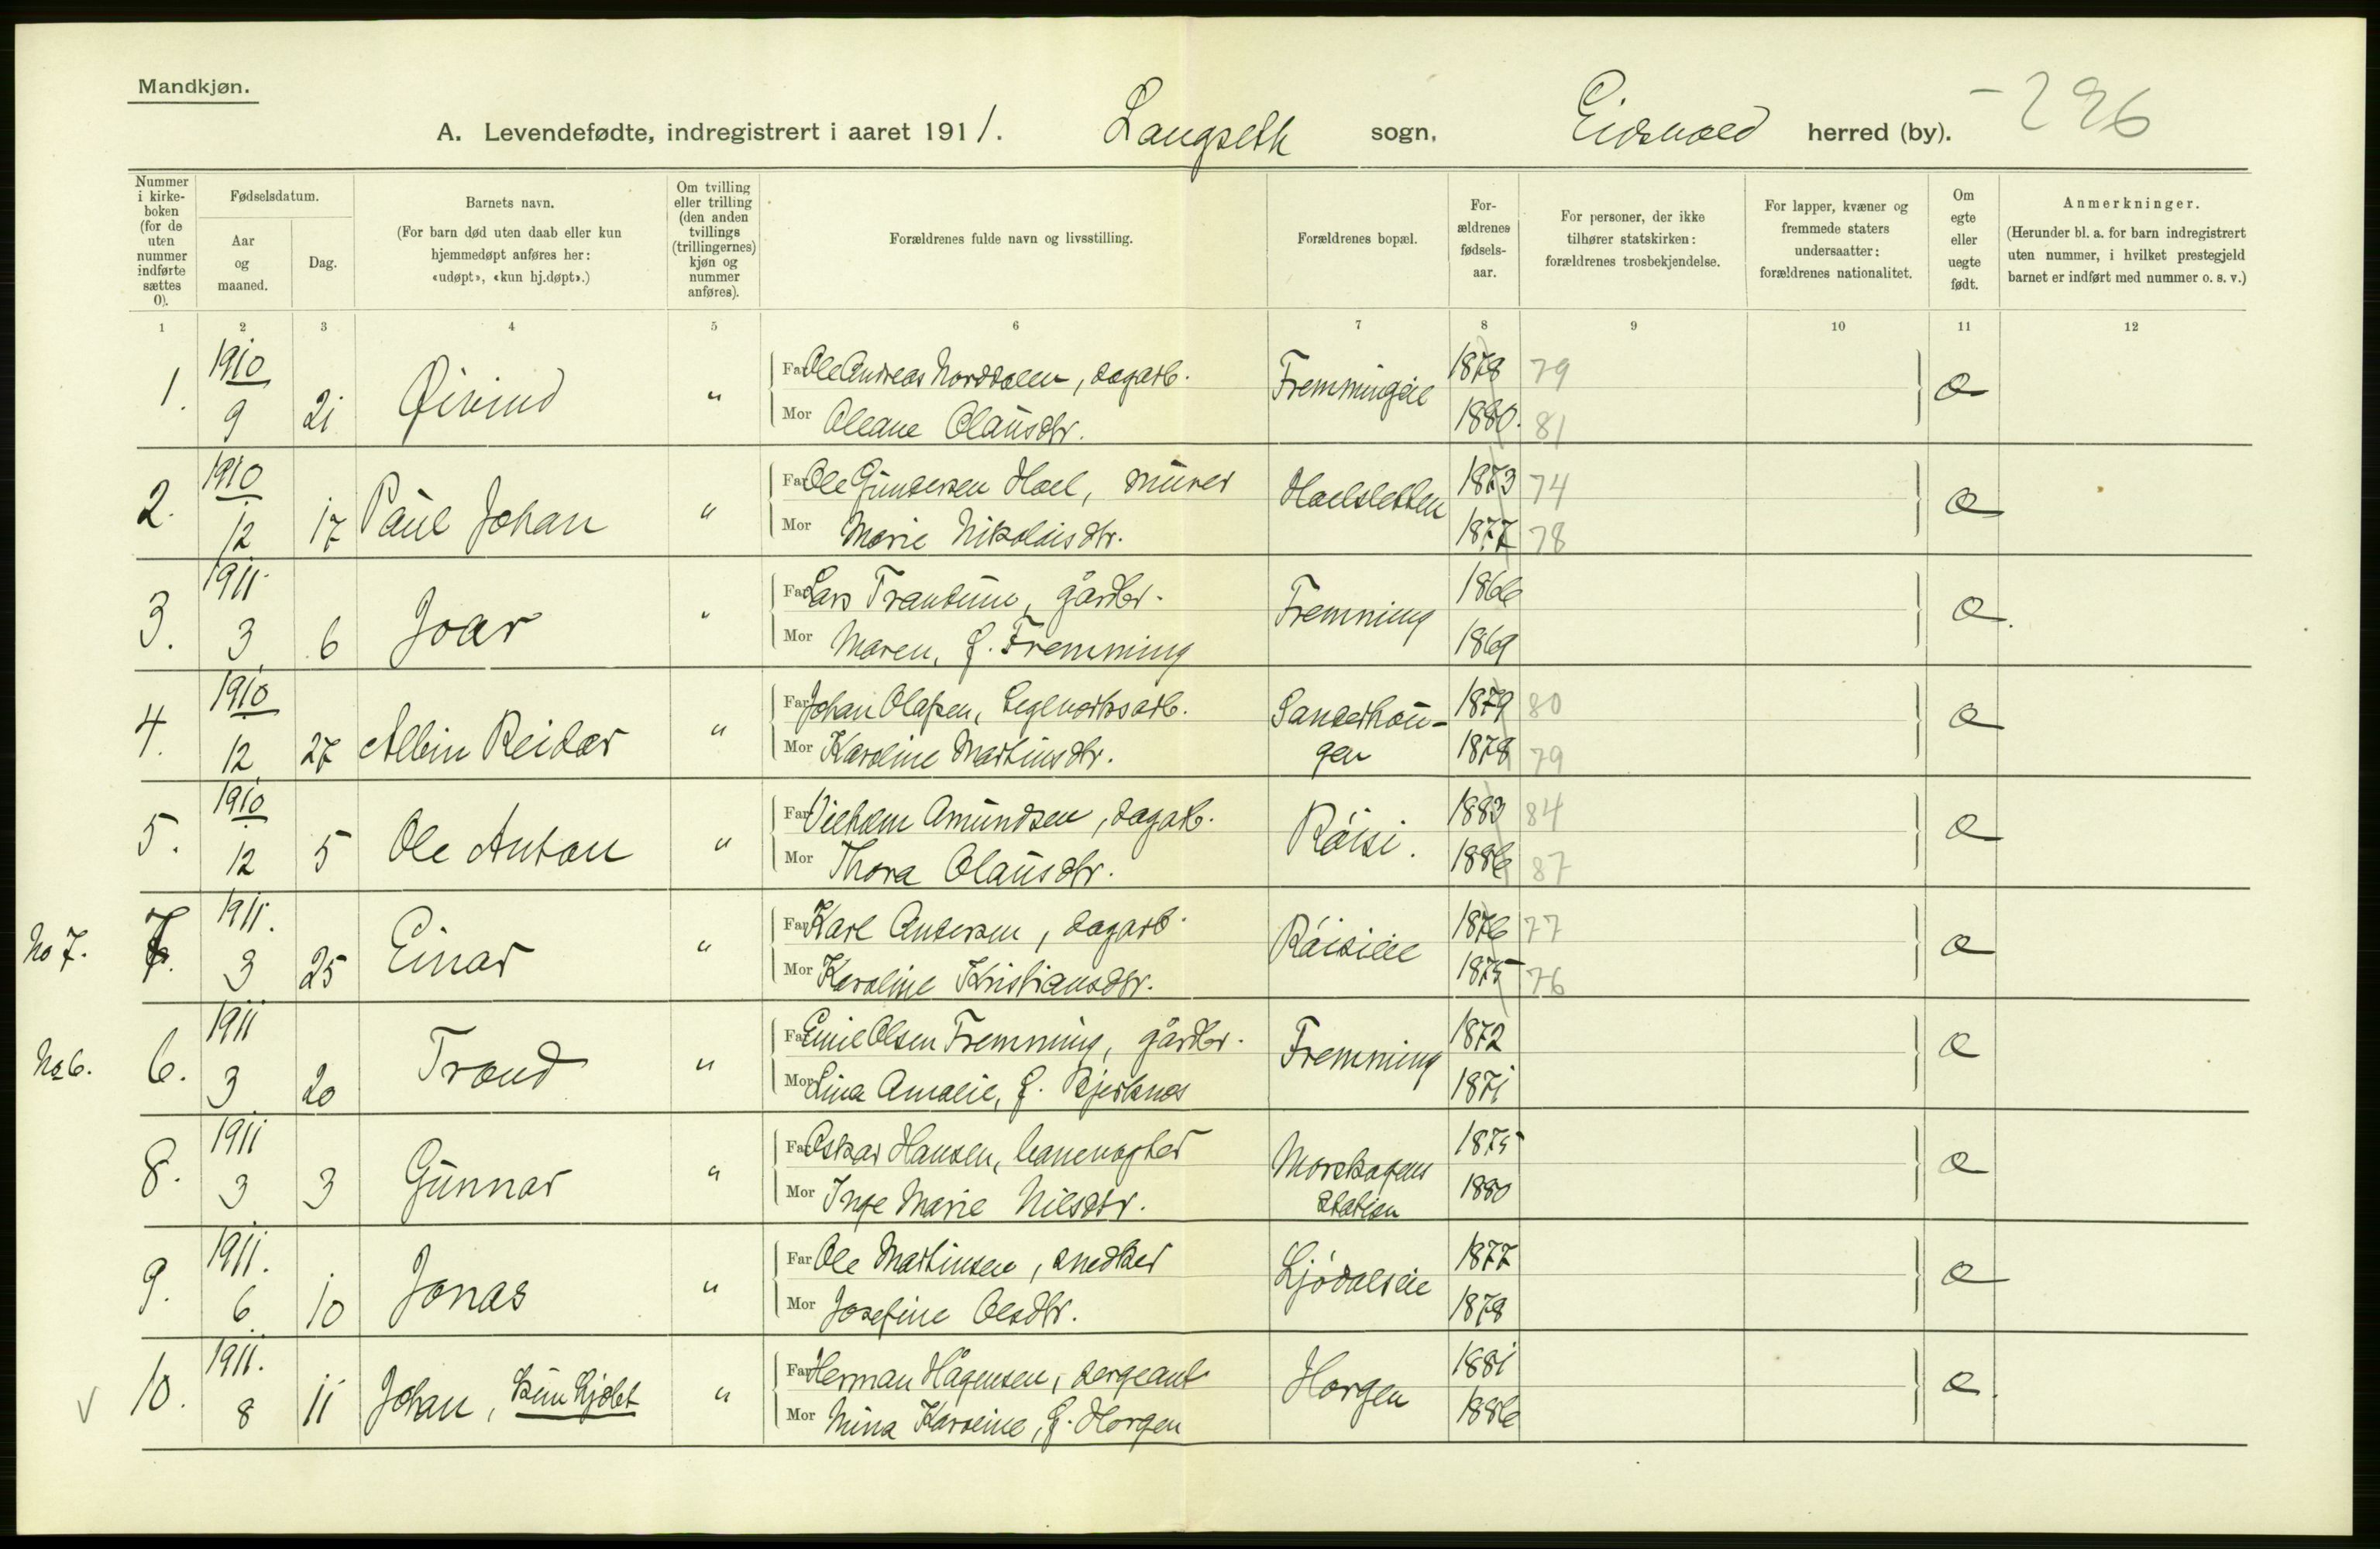 Mandkjøn.
A. Levendefødte, indregistrert i aaret 1911. Langseth sogn, Eidsvold herred (by). -296
Nummer i kirke-boken (for de uten nummer indførte sættes 0).
Fødselsdatum.
Aar og maaned.
Dag.
Barnets navn.
(For barn død uten daab eller kun hjemmedøpt anføres her: «udøpt», «kun hj.døpt».)
Om tvilling eller trilling (den anden tvillings (trillingernes) kjøn og nummer anføres).
Forældrenes fulde navn og livsstilling.
Forældrenes bopæl.
For-ældrenes fødsels-aar.
For personer, der ikke tilhører statskirken: forældrenes trosbekjendelse.
For lapper, kvæner og fremmede staters undersaatter: forældrenes nationalitet.
Om egte eller uegte født.
Anmerkninger.
(Herunder bl. a. for barn indregistrert uten nummer, i hvilket prestegjeld barnet er indført med nummer o. s. v.)
1 2 3 4 5 6 7 8 9 10 11 12
1. 1910 9 21 Øivind " Far Ole Andreas Norddalen, dagarb. Fremmingeie 1878 79 æ
Mor Oleane Olausdtr. 1880. 81
2. 1910 12 17 Paul Johan " Far Ole Gundersen Hoel, murer Hoelsletten 1873 74 æ
Mor Marie Nikolaisdtr. 1877 78
3. 1911 3 6 Joar " Far Lars Trandum, gårdbr. Fremming 1866 æ.
Mor Maren, f. Fremming 1869
4. 1910 12 27 Albin Reidar " Far Johan Olafsen, teglverksarb. Sanderhou- 1879 80 æ
Mor Karoline Martinsdtr. gen 1878 79
5. 1910 12 5 Ole Anton " Far Vilhelm Amundsen, dagarb. Røisi. 1883 84 æ
Mor Thora Olausdtr. 1886 87
No 7. 7. 1911. 3 25 Einar " Far Karl Andersen, dagarb. Røisieie 1876 77 æ
Mor Karoline Kristiansdtr. 1875 76
No 6. 6. 1911 3 20 Trond " Far Emil Olsen Fremming, gårdbr. Fremming 1872 æ
Mor Lina Amalie, f. Bjerknes 1871
8. 1911 3 3 Gunnar " Far Oskar Hansen, banevogter Morskogens 1875 æ
Mor Inge Marie Nilsdtr. station 1880
9. 1911. 6 10 Jonas " Far Ole Martinsen, snedker Ljødalseie 1877 æ
Mor Josefine Olsdtr. 1878
10. 1911. 8 11 Johan, kun hjdøbt " Far Herman Hågensen, sergeant Horgen 1881 æ.
Mor Mina Karoline, f. Horgen 1886